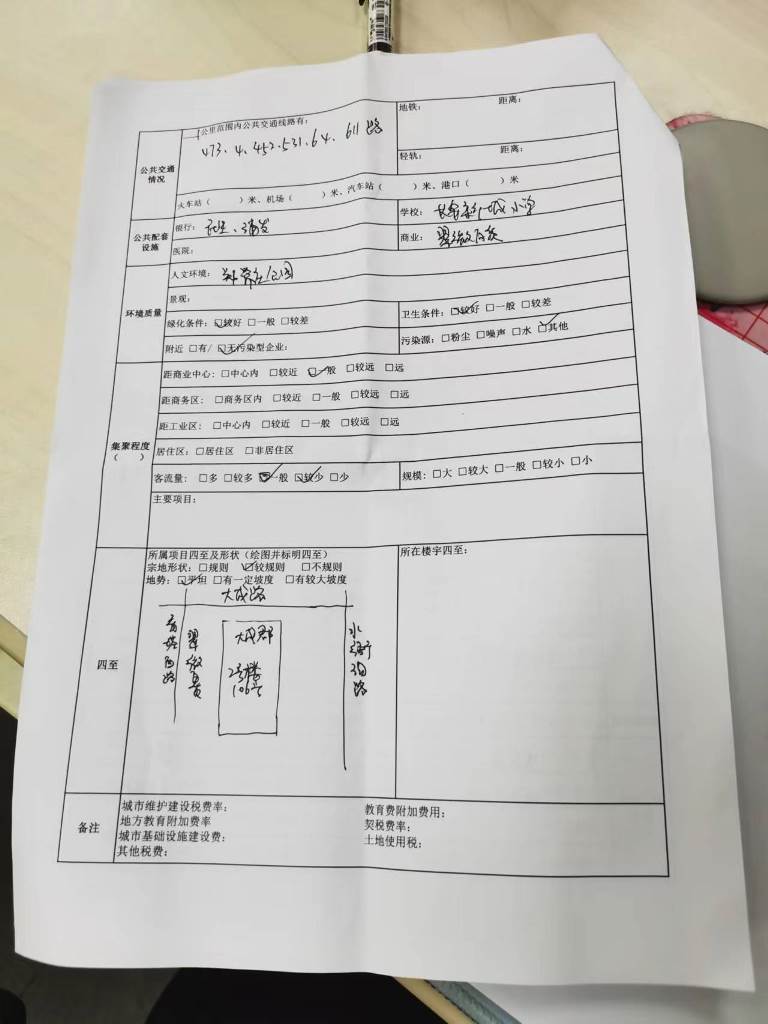 公共交通情况
一公里范围内公共交通线路有:
473、4、452、531、64、611路
地铁: 距离:
轻轨: 距离:
火车站( )米、机场( )米、汽车站( )米、港口( )米
公共配套设施
银行: 民生、浦发
学校: 小学
医院:
商业: 翠微百货
环境质量
人文环境: 公园
景观:
绿化条件: ☑较好 □一般 □较差
卫生条件: ☑较好 □一般 □较差
附近 □有/ ☑无污染型企业:
污染源: □粉尘 □噪声 □水 ☑其他
集聚程度
( )
距商业中心: □中心内 □较近 ☑一般 □较远 □远
距商务区: □商务区内 □较近 □一般 □较远 □远
距工业区: □中心内 □较近 □一般 □较远 □远
居住区: □居住区 □非居住区
客流量: □多 □较多 ☑一般 ☑较少 □少
规模: □大 □较大 □一般 □较小 □小
主要项目:
四至
所属项目四至及形状(绘图并标明四至)
宗地形状: □规则 ☑较规则 □不规则
地势: ☑平坦 □有一定坡度 □有较大坡度
所在楼宇四至:
大成路
西路
翠微
大成郡
2号楼
106号
水衙沟路
备注
城市维护建设税费率:
教育费附加费用:
地方教育附加费率
契税费率:
城市基础设施建设费:
土地使用税:
其他税费: